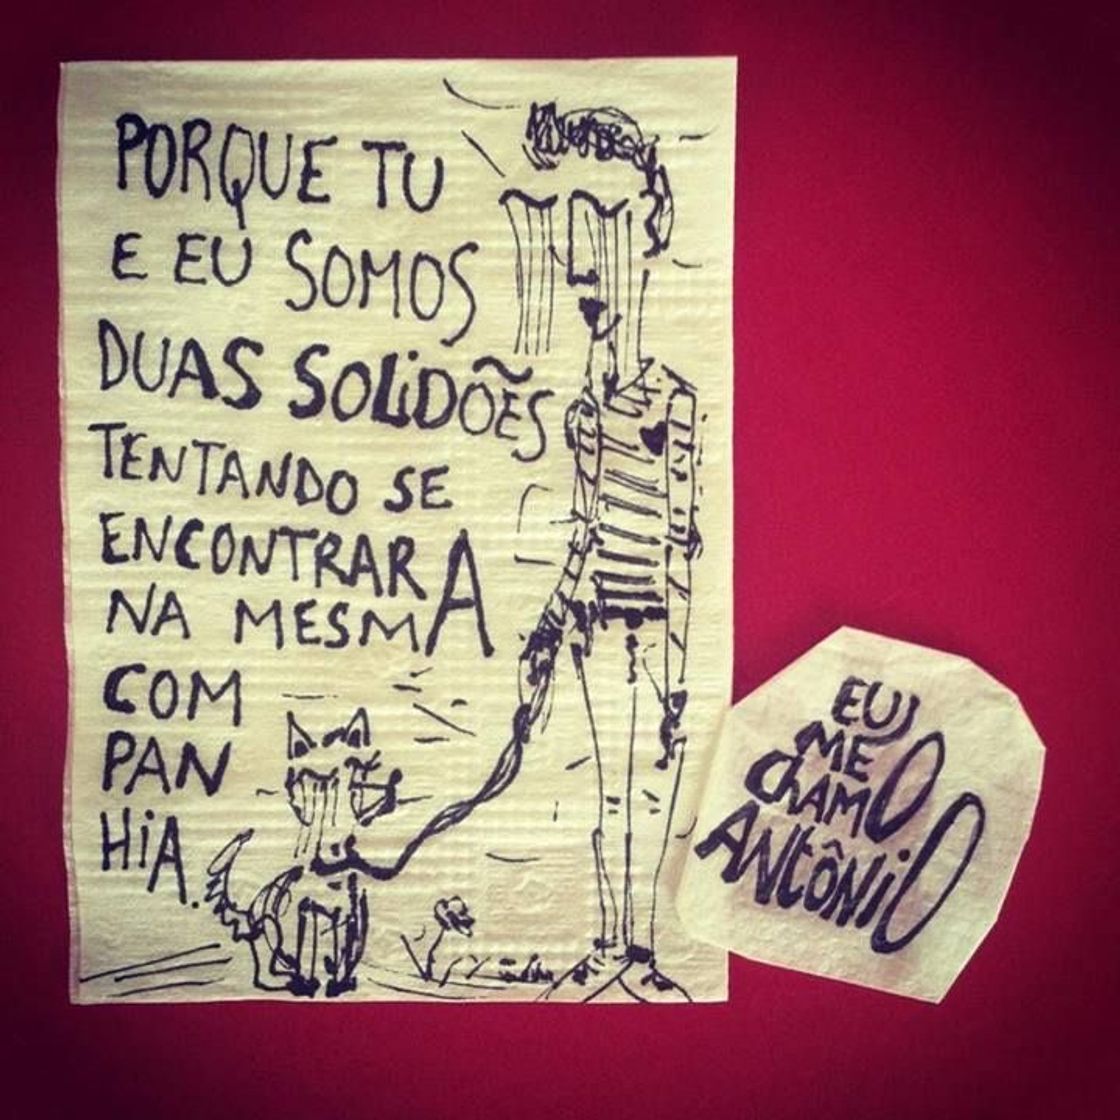 PORQUE TU
E EU SOMOS
DUAS SOLIDÕES
TENTANDO SE
ENCONTRAR
NA MESMA
COM
PAN
HiA.
EU
ME
ChAMO
ANtôNiO